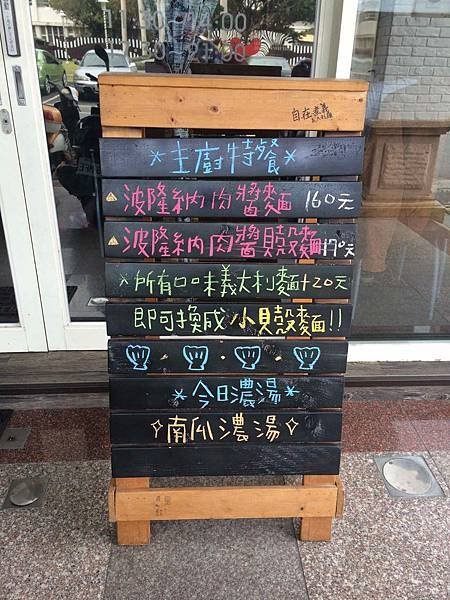 自在義義
*主廚特餐*
波隆納肉醬麵 160元
波隆納肉醬貝殼麵 190元
*所有口味義大利麵+20元
即可換成 小貝殼麵!!
*今日濃湯*
南瓜濃湯